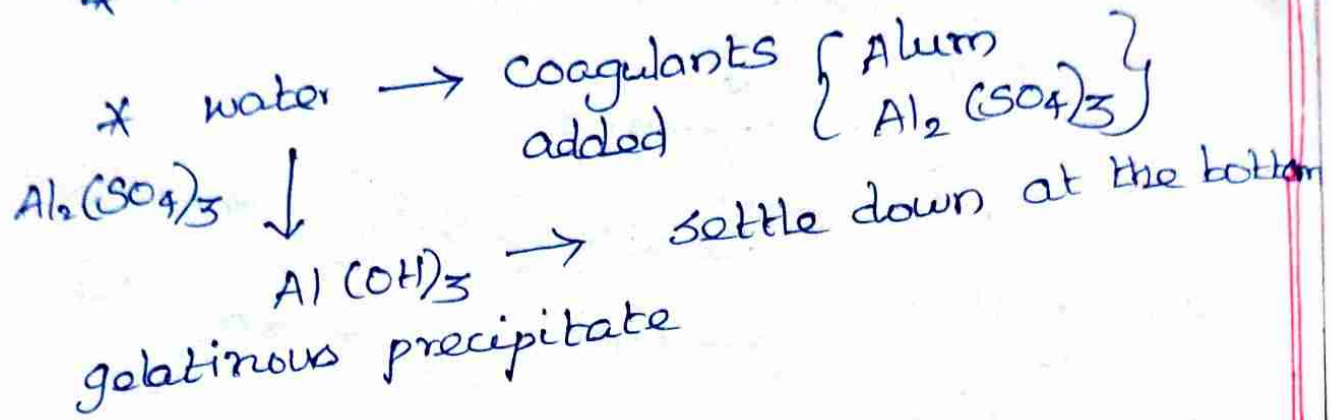 * water → coagulants { Alum }
added { Al₂(SO₄)₃ }
Al₂(SO₄)₃ ↓
Al(OH)₃ → settle down at the bottom
gelatinous precipitate